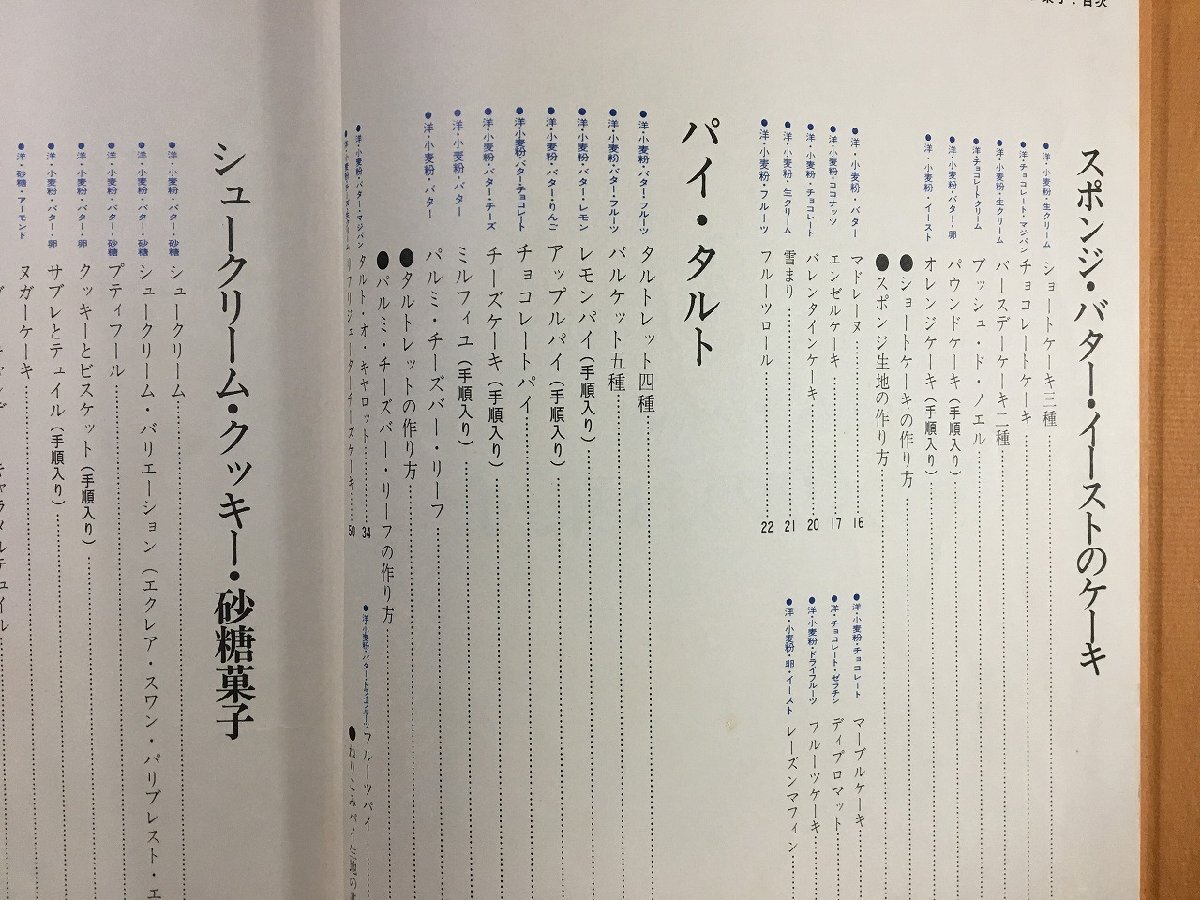 スポンジ・バター・イーストのケーキ
●洋・小麦粉・生クリーム
ショートケーキ三種
●洋・チョコレート・マジパン
チョコレートケーキ
●洋・小麦粉・生クリーム
バースデーケーキ二種
●洋・チョコレートクリーム
ブッシュ・ド・ノエル
●洋・小麦粉・バター・卵
パウンドケーキ(手順入り)
●洋・小麦粉・イースト
オレンジケーキ(手順入り)
●ショートケーキの作り方
●スポンジ生地の作り方
●洋・小麦粉・バター
マドレーヌ 16
●洋・小麦粉・ココナッツ
エンゼルケーキ 17
●洋・小麦粉・チョコレート
バレンタインケーキ 20
●洋・小麦粉・生クリーム
雪まり 21
●洋・小麦粉・フルーツ
フルーツロール 22
●洋・小麦粉・チョコレート
マーブルケーキ
●洋・チョコレート・ゼラチン
ディプロマット
●洋・小麦粉・ドライフルーツ
フルーツケーキ
●洋・小麦粉・卵・イースト
レーズンマフィン
パイ・タルト
●洋・小麦粉・バター・フルーツ
タルトレット四種
●洋・小麦粉・バター・フルーツ
バルケット五種
●洋・小麦粉・バター・レモン
レモンパイ(手順入り)
●洋・小麦粉・バター・りんご
アップルパイ(手順入り)
●洋・小麦粉・バター・チョコレート
チョコレートパイ
●洋・小麦粉・バター・チーズ
チーズケーキ(手順入り)
●洋・小麦粉・バター
ミルフィユ(手順入り)
●洋・小麦粉・バター
パルミ・チーズバー・リーフ
●タルトレットの作り方
●パルミ・チーズバー・リーフの作り方
●洋・小麦粉・バター・マジパン
タルト・オ・キャロット 34
リフリジェーターチーズケーキ 50
フルーツパイ
シュークリーム・クッキー・砂糖菓子
●洋・小麦粉・バター・砂糖
シュークリーム
●洋・小麦粉・バター・砂糖
シュークリーム・バリエーション(エクレア・スワン・パリブレスト・エ
●洋・小麦粉・バター・砂糖
プティフール
●洋・小麦粉・バター・卵
クッキーとビスケット(手順入り)
●洋・小麦粉・バター・卵
サブレとテュイル(手順入り)
●洋・砂糖・アーモンド
ヌガーケーキ